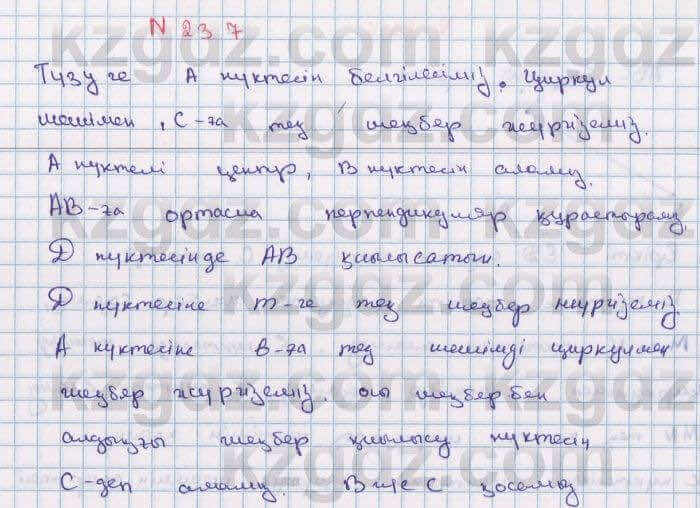 N 237
Түзуге А нүктесін белгілейміз. Циркул
шешімен, С-ға тең шеңбер жүргіземіз.
А нүктелі центр, В нүктесін аламыз.
АВ-ға ортасна перпендикуляр құрастырамыз.
D нүктесінде АВ қиылысатын.
D нүктесіне m-ге тең шеңбер жүргіземіз.
А нүктесіне В-ға тең шешімді циркулмен
шеңбер жүргіземіз. осы шеңбербен
алдыңғы шеңбер қиылысу нүктесін
С-деп аламыз. В ше С қосамыз
kzgdz.com